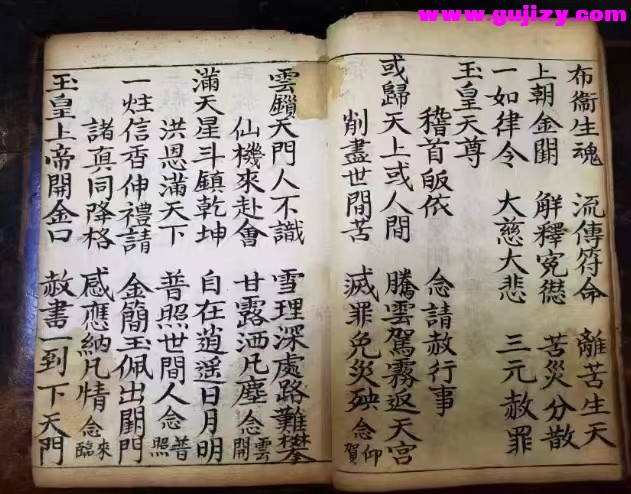 www.gujizy.com
布衞生魂 流傳符命 離苦生天
上朝金闕 解釋冤愆 苦災分散
一如律令 大慈大悲 三元赦罪
玉皇天尊
稽首皈依 念請赦行事
或歸天上或人間 騰雲駕霧返天宮
削盡世間苦 滅罪免災殃 念仰賀
雲鎖天門人不識 雪理深處路難攀
仙機來赴會 甘露洒凡塵 念雲開
滿天星斗鎮乾坤 自在逍遥日月明
洪恩滿天下 普照世間人 念普照
一炷信香伸禮請 金簡玉佩出閨門
諸真同降格 感應納凡情 念來臨
玉皇上帝開金口 赦書一到下天門